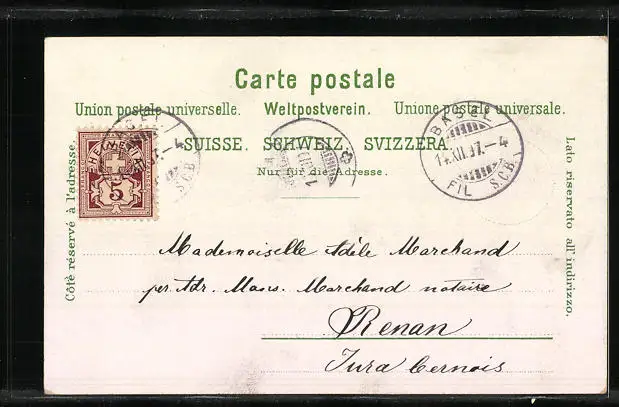 Carte postale
Union postale universelle. Weltpostverein. Unione postale universale.
SUISSE. SCHWEIZ. SVIZZERA.
Nur für die Adresse.
Côté réservé à l'adresse.
Lato riservato all' indirizzo.
HELVETIA
5
BASEL
14.XII.97.–4
FIL S.C.B.
Mademoiselle Adèle Marchand
per Adr. Mons. Marchand notaire
Renan
Jura bernois